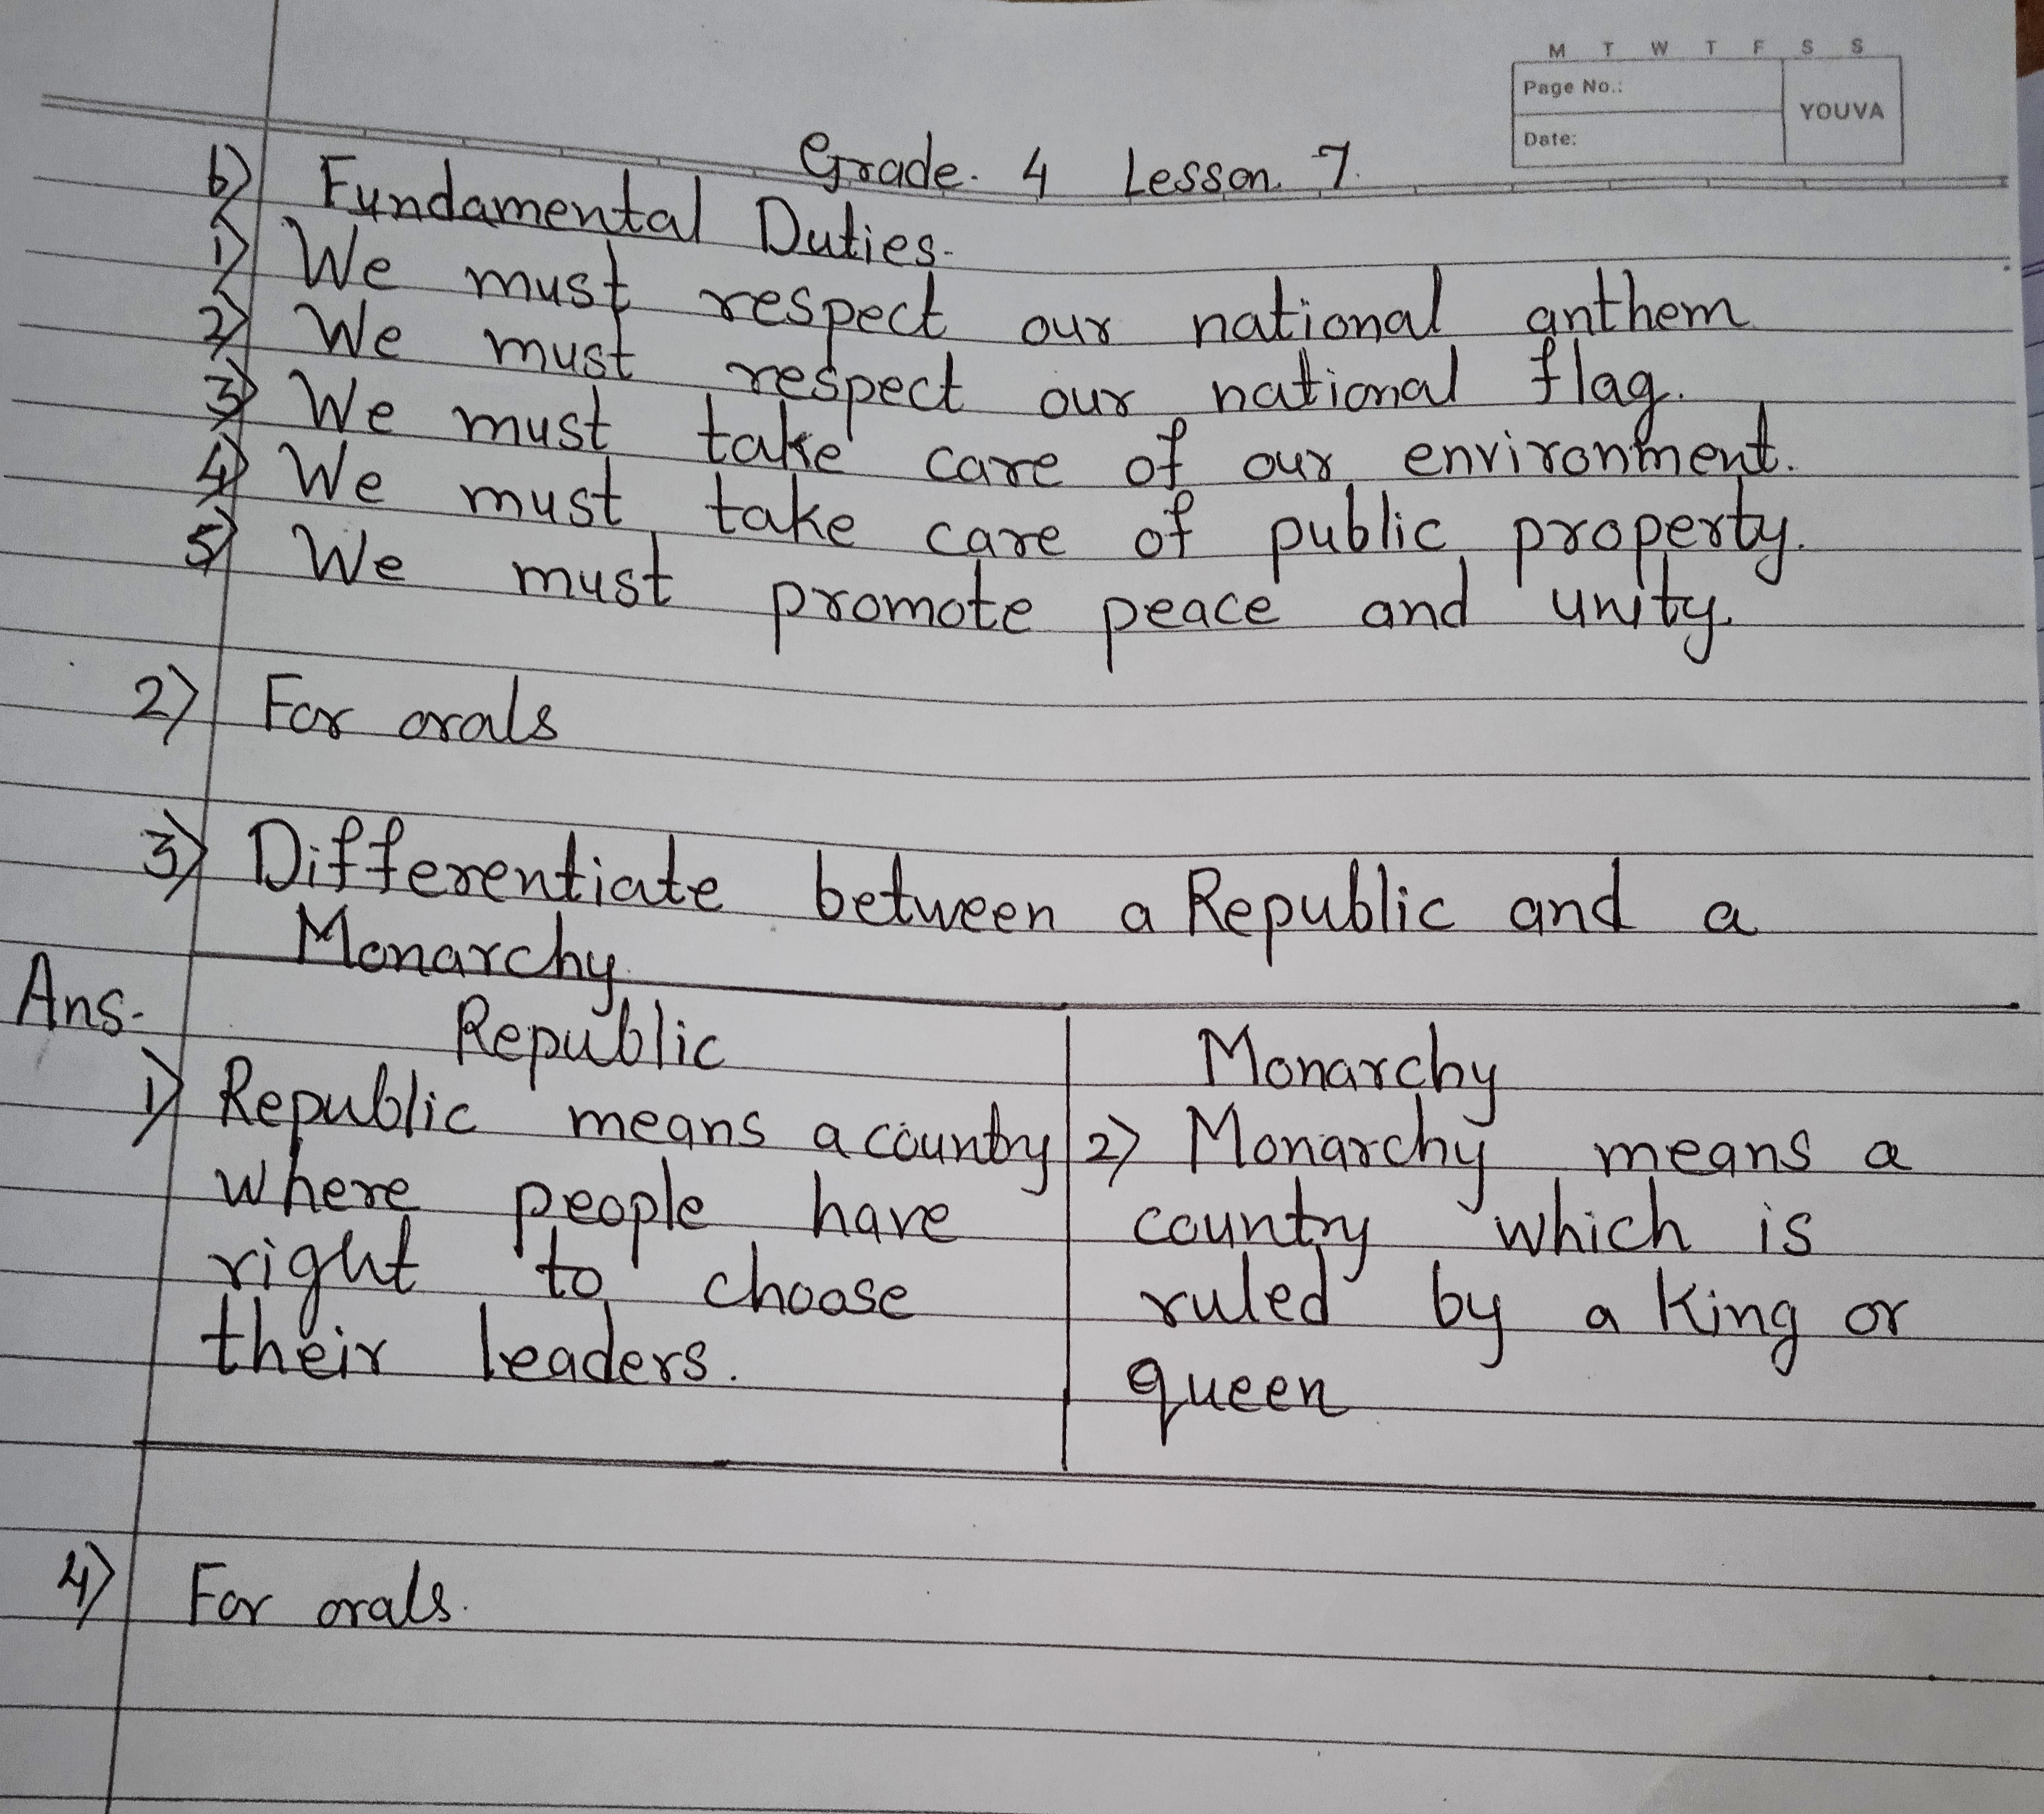 M T W T F S S
Page No.:
YOUVA
Date:
Grade. 4 Lesson. 7.
b) Fundamental Duties.
1) We must respect our national anthem
2) We must respect our national flag.
3) We must take care of our environment.
4) We must take care of public property.
5) We must promote peace and unity.
2) For orals
3) Differentiate between a Republic and a
Monarchy.
Ans.
Republic
1) Republic means a country
where people have
right to choose
their leaders.
Monarchy
2) Monarchy means a
country which is
ruled by a King or
queen
4) For orals.